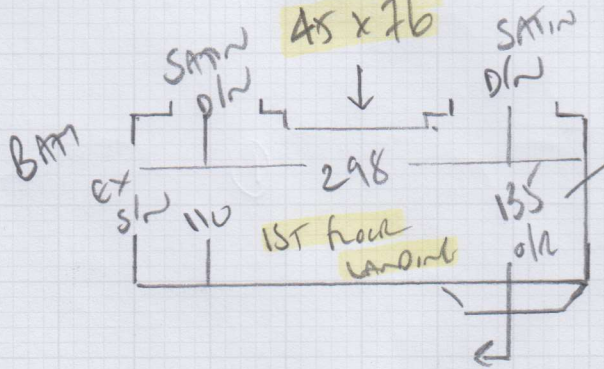 45 x 76
SATIN
D/N
SATIN
D/N
BATH
EX
S/N
110
298
135
O/R
1ST FLOOR
LANDING